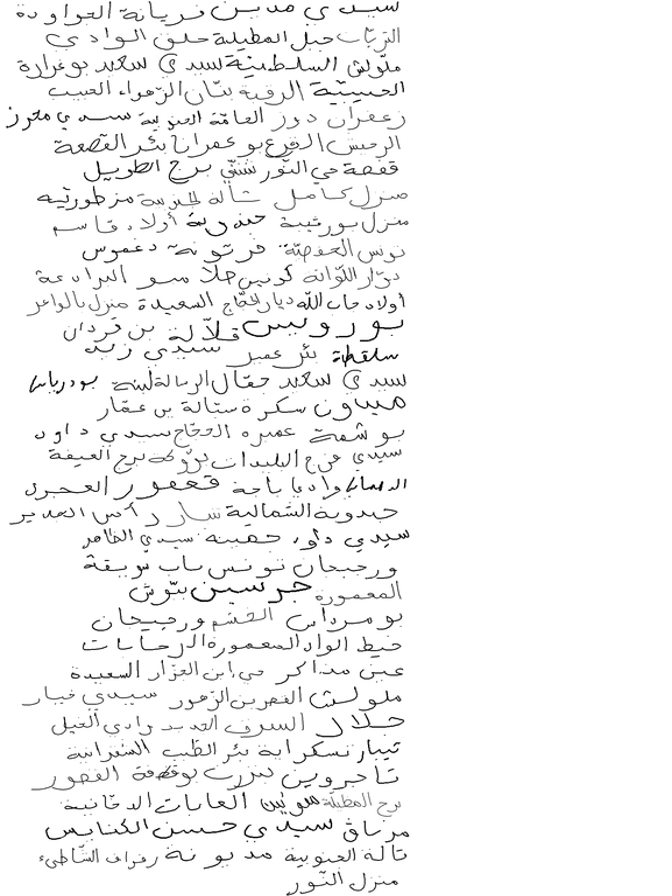 سيدي مدين فريانة العواودة
التربّات جبل المطيلة حلق الوادي
ملّولش السلطنيّة سيدي سعيد بوغرارة
الحبيبيّة الرقبة بنّان الزهراء الحبيب
زعفران دوز العامّة الجنوبية سيدي محرز
الرميش القرع بو عمران بئر القصعة
قفصة حي النّور شنّني برج الطويل
منزل كامل شالة الحنوسة مزطورئيه
منزل بورقيبة جندوبة أولاد قاسم
تونس الحفصيّة فرتونة دغموس
دوّار اللّواتة كونين جلاّ مسو البرادعة
أولاد جاب الله ديار الحجّاج السعيدة منزل بالواعر
بورويس قلاّلة بن قردان
سلقطة بئر عمير سيدي زيد
سيدي سعيد جمّال الرسالة لبنة بودرياس
ميساون سكرة ستالة بن عمّار
بو شمّة عميرة الحجّاج سيدي داود
سيدي فرج البليدات بزّوكة برج العيفة
الدهماني وادي باجة قعفور العجرى
جندوبة الشمالية سار رأس الغدير
سيدي داود حفينة سيدي الظاهر
ورجيجان تونس باب سويقة
المعمورة جرسين بتّوش
بو مرداس القشم ورجيجان
خيط الواد المعمورة الرحابات
عين مذاكر حي ابن الجزّار السعيدة
ملولش القصرين الزهور سيدي خيار
جلال السرف الجديد وادي الخيل
تيبار تسكراية بئر الطّيب الشفرانية
تاجروين بنزرت بوقطفة القصور
برج المطيلة سونين الغابات الدخّانية
مرناق سيدي حسن الكنايس
تالة الجنوبية مديونة رفراف الشّاطىء
منزل النّور